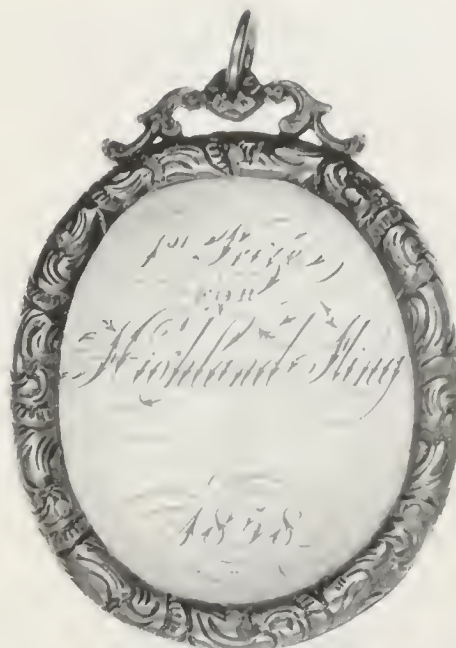 1st Prize
for
Highland Fling
1858